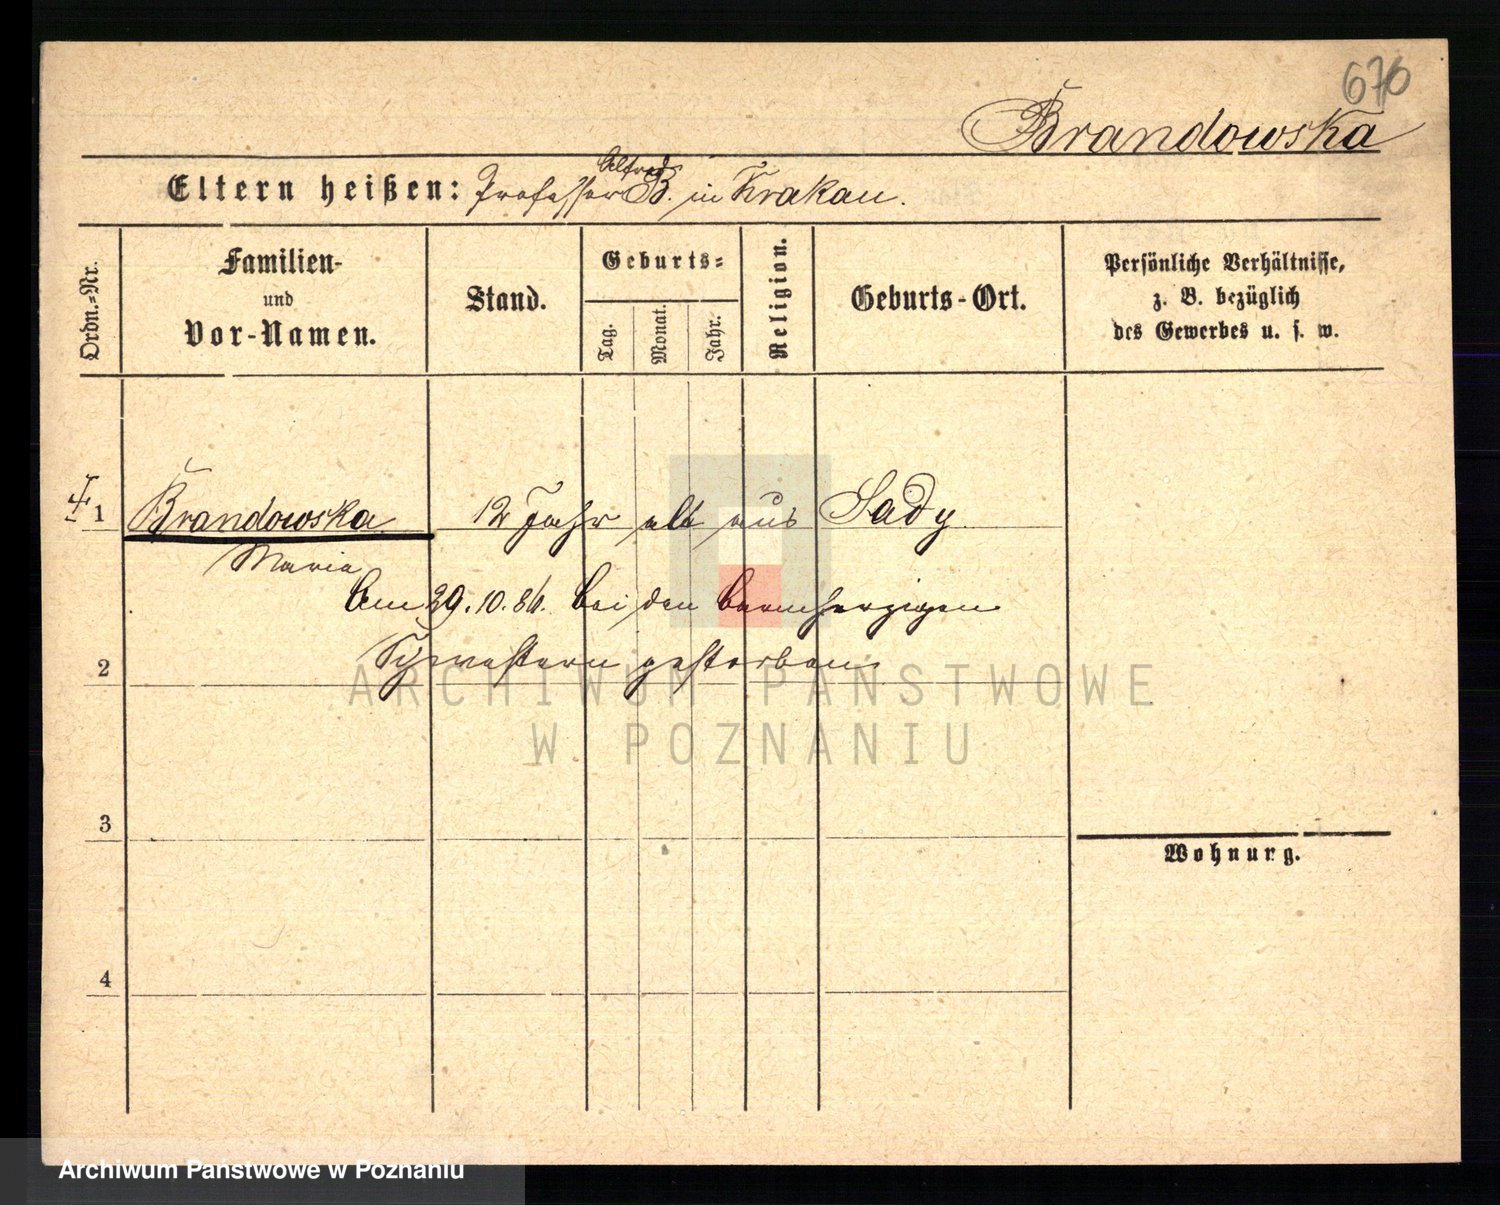 676
Brandowska
Eltern heißen: Professor Alfred B. in Krakau.
Ordn.-Nr.
Familien-
und
Vor-Namen.
Stand.
Geburts-
Tag.
Monat.
Jahr.
Religion.
Geburts-Ort.
Persönliche Verhältnisse,
z. B. bezüglich
des Gewerbes u. s. w.
1 Brandowska 12 Jahr alt aus Sady
Maria
Am 29.10.86. bei den barmherzigen
Schwestern gestorben.
2
ARCHIWUM PAŃSTWOWE
W POZNANIU
3
Wohnung.
4
Archiwum Państwowe w Poznaniu